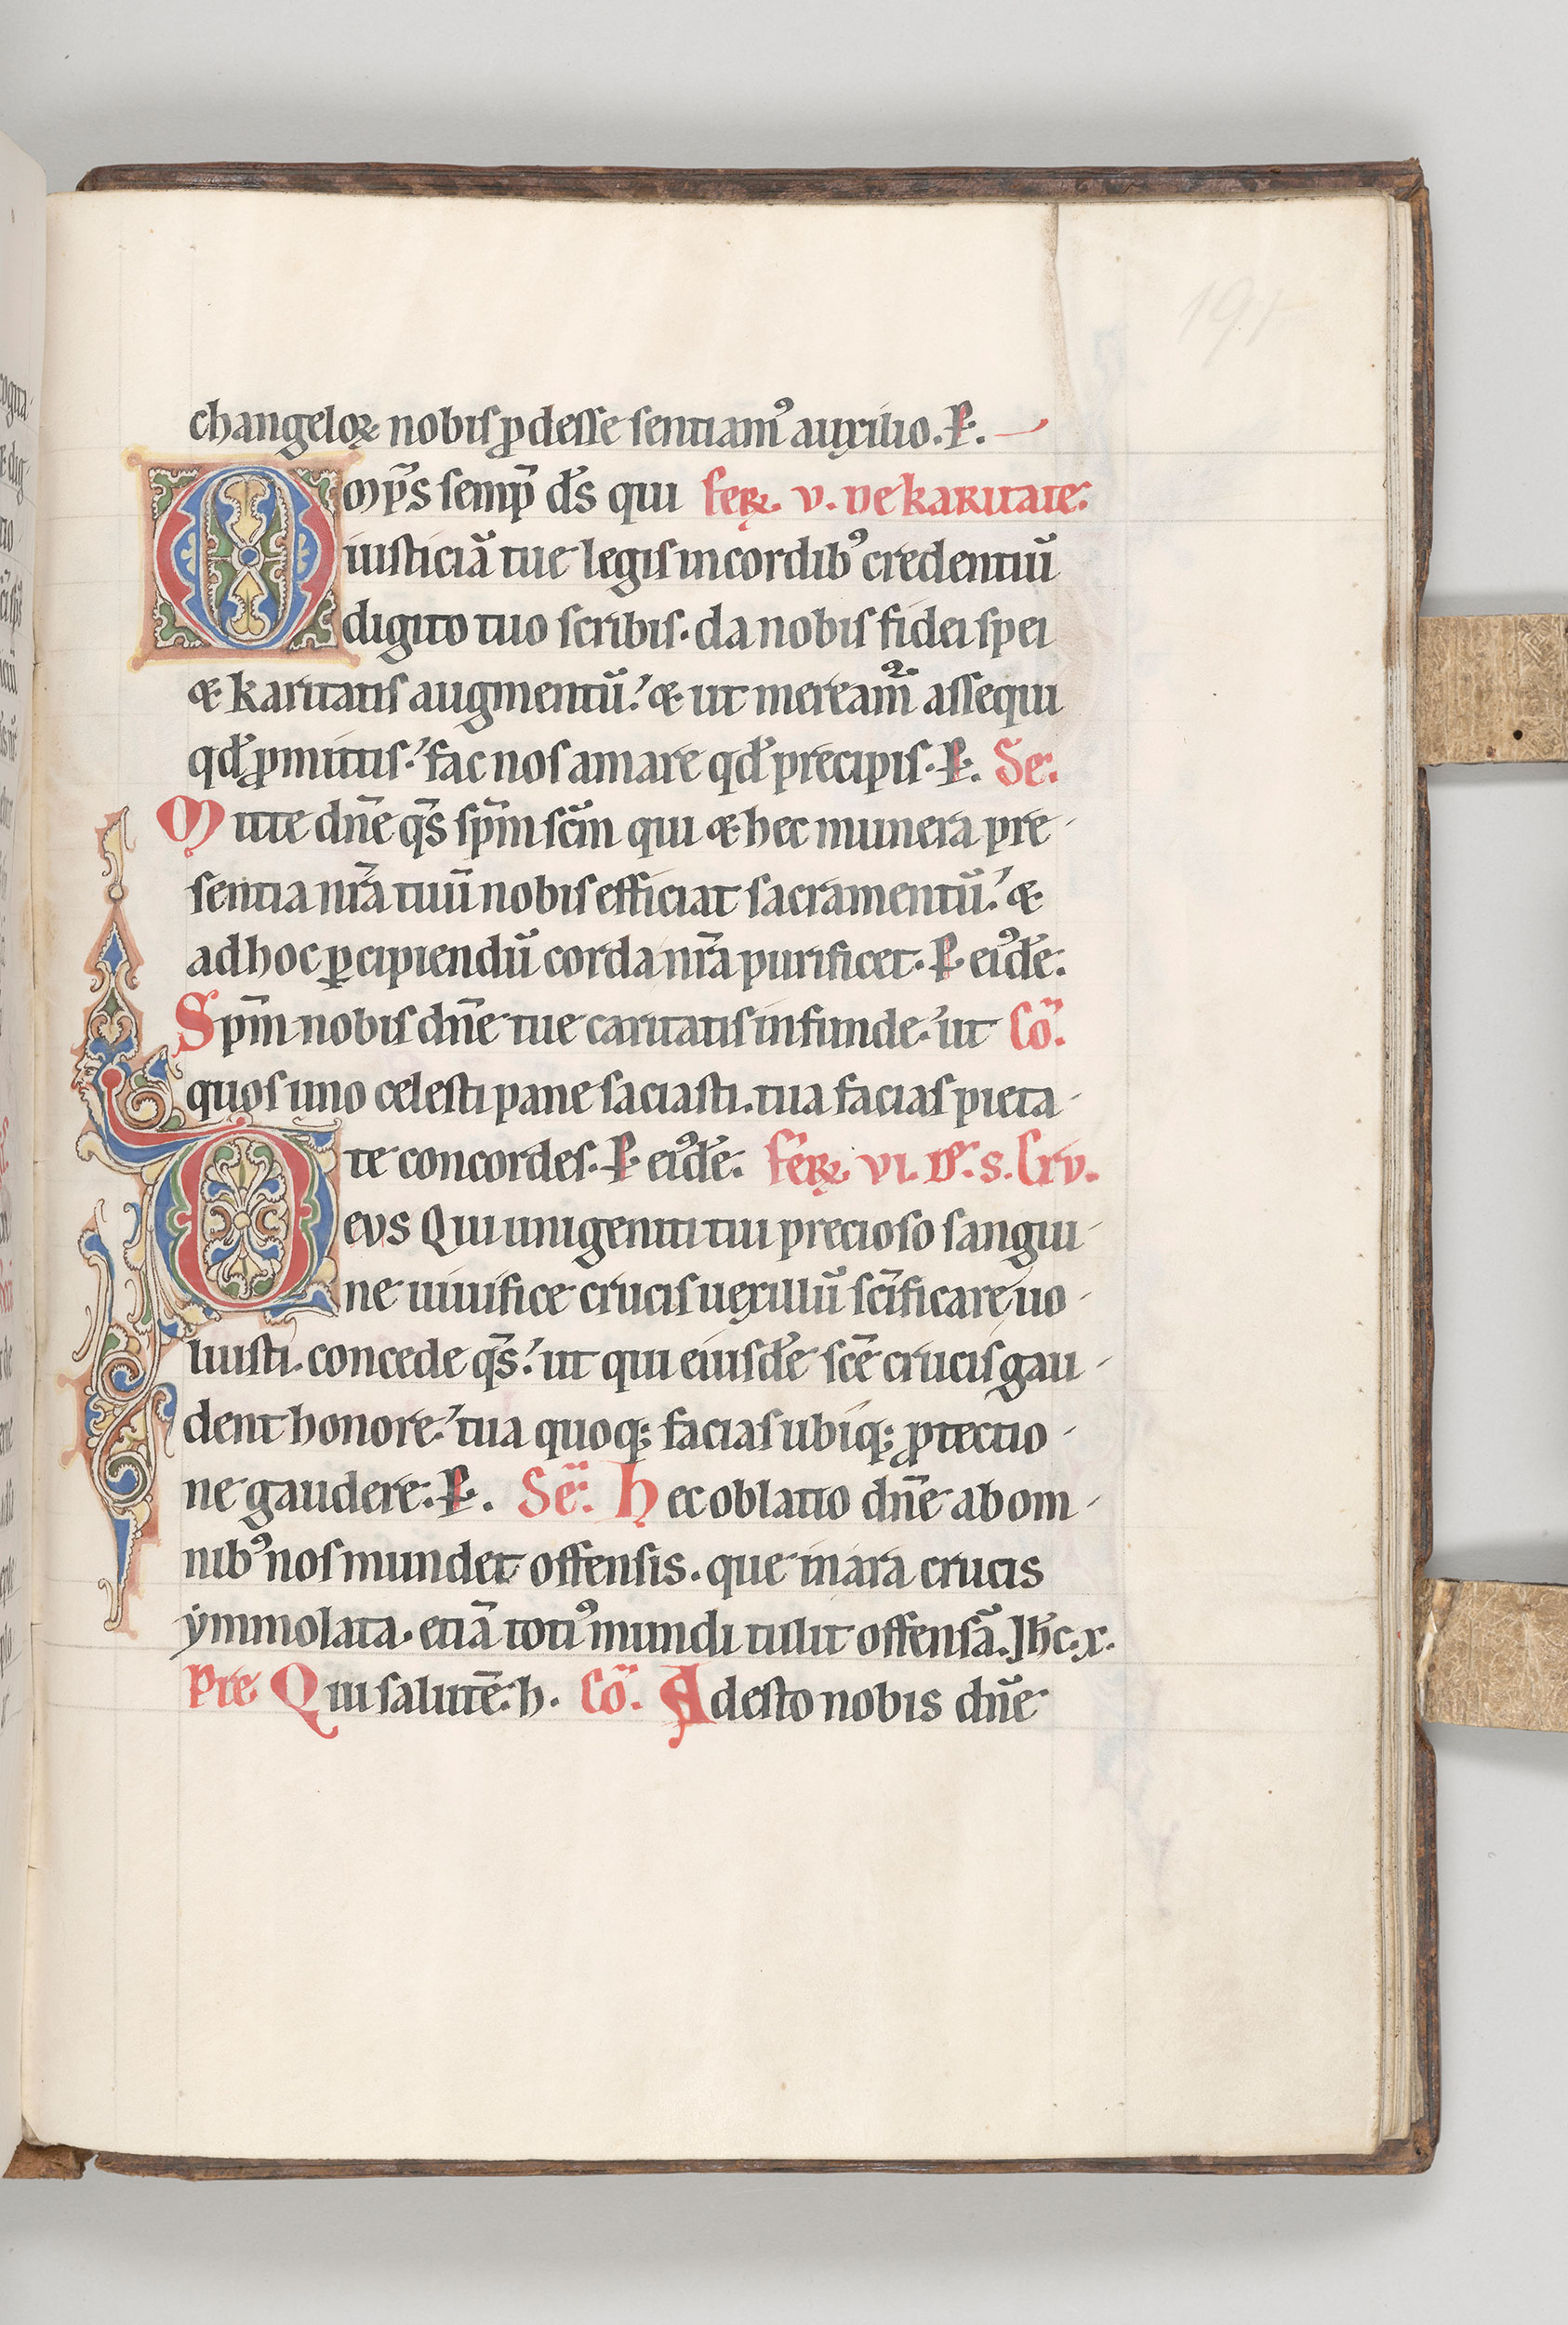 197
changeloꝝ nobis ꝓdesse sentiam᷒ auxilio. P̱.
Om̅p̅s semp̅ d̅s qui fer. v. de karitate.
iusticia̅ tue legis in cordib᷒ credentiu̅
digito tuo scribis. da nobis fidei spei
& karitatis augmentu̅. & ut meream̅ assequi
qd̅ ꝓmittis. fac nos amare qd̅ precipis. P̱. Se.
Mitte dn̅e qs̅ sp̅m sc̅m qui & hec munera pre-
sentia nr̅a tuu̅ nobis efficiat sacramentu̅. &
ad hoc ꝑcipiendu̅ corda nr̅a purificet. P̱. ei᷒de̅.
Sp̅m nobis dn̅e tue caritatis infunde. ut Co̅.
quos uno celesti pane saciasti. tua facias pieta-
te concordes. P̱ ei᷒de̅. fer. vi. De. s. Crv.
Devs Qui unigeniti tui precioso sangui-
ne uiuifice crucis uexillu̅ sc̅ificare uo-
luisti. concede qs̅. ut qui eiusde̅ sc̅e crucis gau-
dent honore. tua quoq; facias ubiq; ꝓtectio-
ne gaudere. P̱. Se̅. Hec oblatio dn̅e ab om-
nib᷒ nos mundet offensis. que in ara crucis
ẏmmolata. etia̅ toti᷒ mundi tulit offensa̅. Ih̅c. x.
Pre Qui salute̅. h. Co̅. Adesto nobis dn̅e